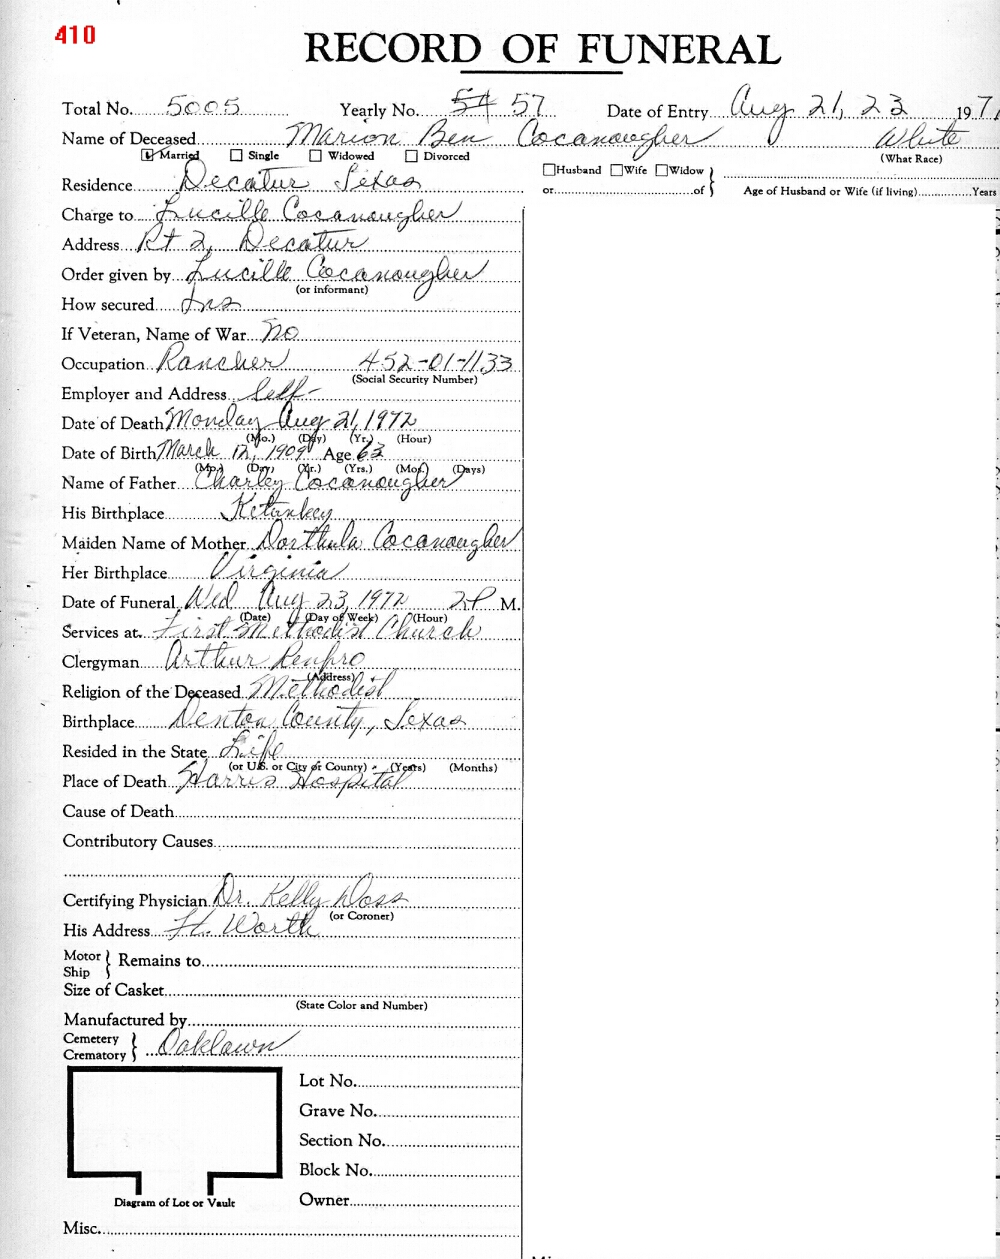 410
RECORD OF FUNERAL
Total No. 5005 Yearly No. 54 57 Date of Entry Aug 21, 23 197
Name of Deceased Marion Ben Cocanougher White
Married Single Widowed Divorced (What Race)
Husband Wife Widow
Residence Decatur Texas or of Age of Husband or Wife (if living) Years
Charge to Lucille Cocanougher
Address Rt 2, Decatur
Order given by Lucille Cocanougher
(or informant)
How secured Ins
If Veteran, Name of War No
Occupation Rancher 452-01-1133
(Social Security Number)
Employer and Address Self-
Date of Death Monday Aug 21, 1972
(Mo.) (Day) (Yr.) (Hour)
Date of Birth March 12, 1909 Age 63
(Mo.) (Day) (Yr.) (Yrs.) (Mos.) (Days)
Name of Father Charley Cocanougher
His Birthplace
Maiden Name of Mother Dorthula Cocanougher
Her Birthplace Virginia
Date of Funeral Wed Aug 23, 1972 2 P M.
(Date) (Day of Week) (Hour)
Services at First Methodist Church
Clergyman Arthur Renfro
(Address)
Religion of the Deceased Methodist
Birthplace Denton County, Texas
Resided in the State Life
(or U.S. or City or County) (Years) (Months)
Place of Death Harris Hospital
Cause of Death
Contributory Causes
Certifying Physician Dr. Kelly Doss
(or Coroner)
His Address Ft. Worth
Motor
Ship } Remains to
Size of Casket
(State Color and Number)
Manufactured by
Cemetery
Crematory } Oaklawn
Lot No.
Grave No.
Section No.
Block No.
Diagram of Lot or Vault
Owner
Misc.